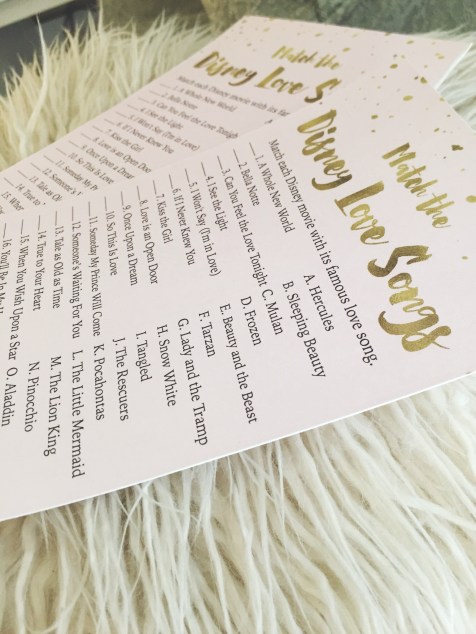 Match the
Disney Love Songs
Match each Disney movie with its famous love song.
___ 1. A Whole New World
___ 2. Bella Notte
___ 3. Can You Feel the Love Tonight
___ 4. I See the Light
___ 5. I Won't Say (I'm in Love)
___ 6. If I Never Knew You
___ 7. Kiss the Girl
___ 8. Love is an Open Door
___ 9. Once Upon a Dream
___ 10. So This is Love
___ 11. Someday My Prince Will Come
___ 12. Someone's Waiting For You
___ 13. Tale as Old as Time
___ 14. True to Your Heart
___ 15. When You Wish Upon a Star
16. You'll Be In My
A. Hercules
B. Sleeping Beauty
C. Mulan
D. Frozen
E. Beauty and the Beast
F. Tarzan
G. Lady and the Tramp
H. Snow White
I. Tangled
J. The Rescuers
K. Pocahontas
L. The Little Mermaid
M. The Lion King
N. Pinocchio
O. Aladdin
Match the
Disney Love S
Match each Disney movie with its fa
___ 1. A Whole New World
___ 2. Bella Notte
___ 3. Can You Feel the Love Tonight
___ 4. I See the Light
___ 5. I Won't Say (I'm in Love)
___ 6. If I Never Knew You
___ 7. Kiss the Girl
___ 8. Love is an Open Doo
___ 9. Once Upon a Dream
___ 10. So This is Love
___ 11. Someday My Pr
___ 12. Someone's
___ 13. Tale as Ol
___ 14. True to
___ 15. When